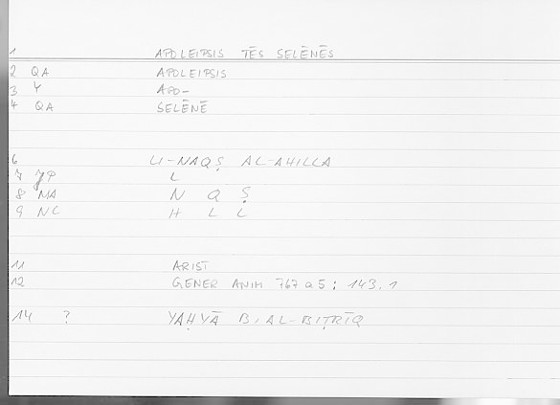 1 APOLEIPSIS TĒS SELĒNĒS
2 QA APOLEIPSIS
3 Y APO-
4 QA SELĒNĒ
6 LI-NAQṢ AL-AHILLA
7 JP L
8 MA N Q Ṣ
9 NC H L L
11 ARIST
12 GENER ANIM 767 a 5 ; 143,1
14 ? YAḤYĀ B. AL-BIṬRĪQ